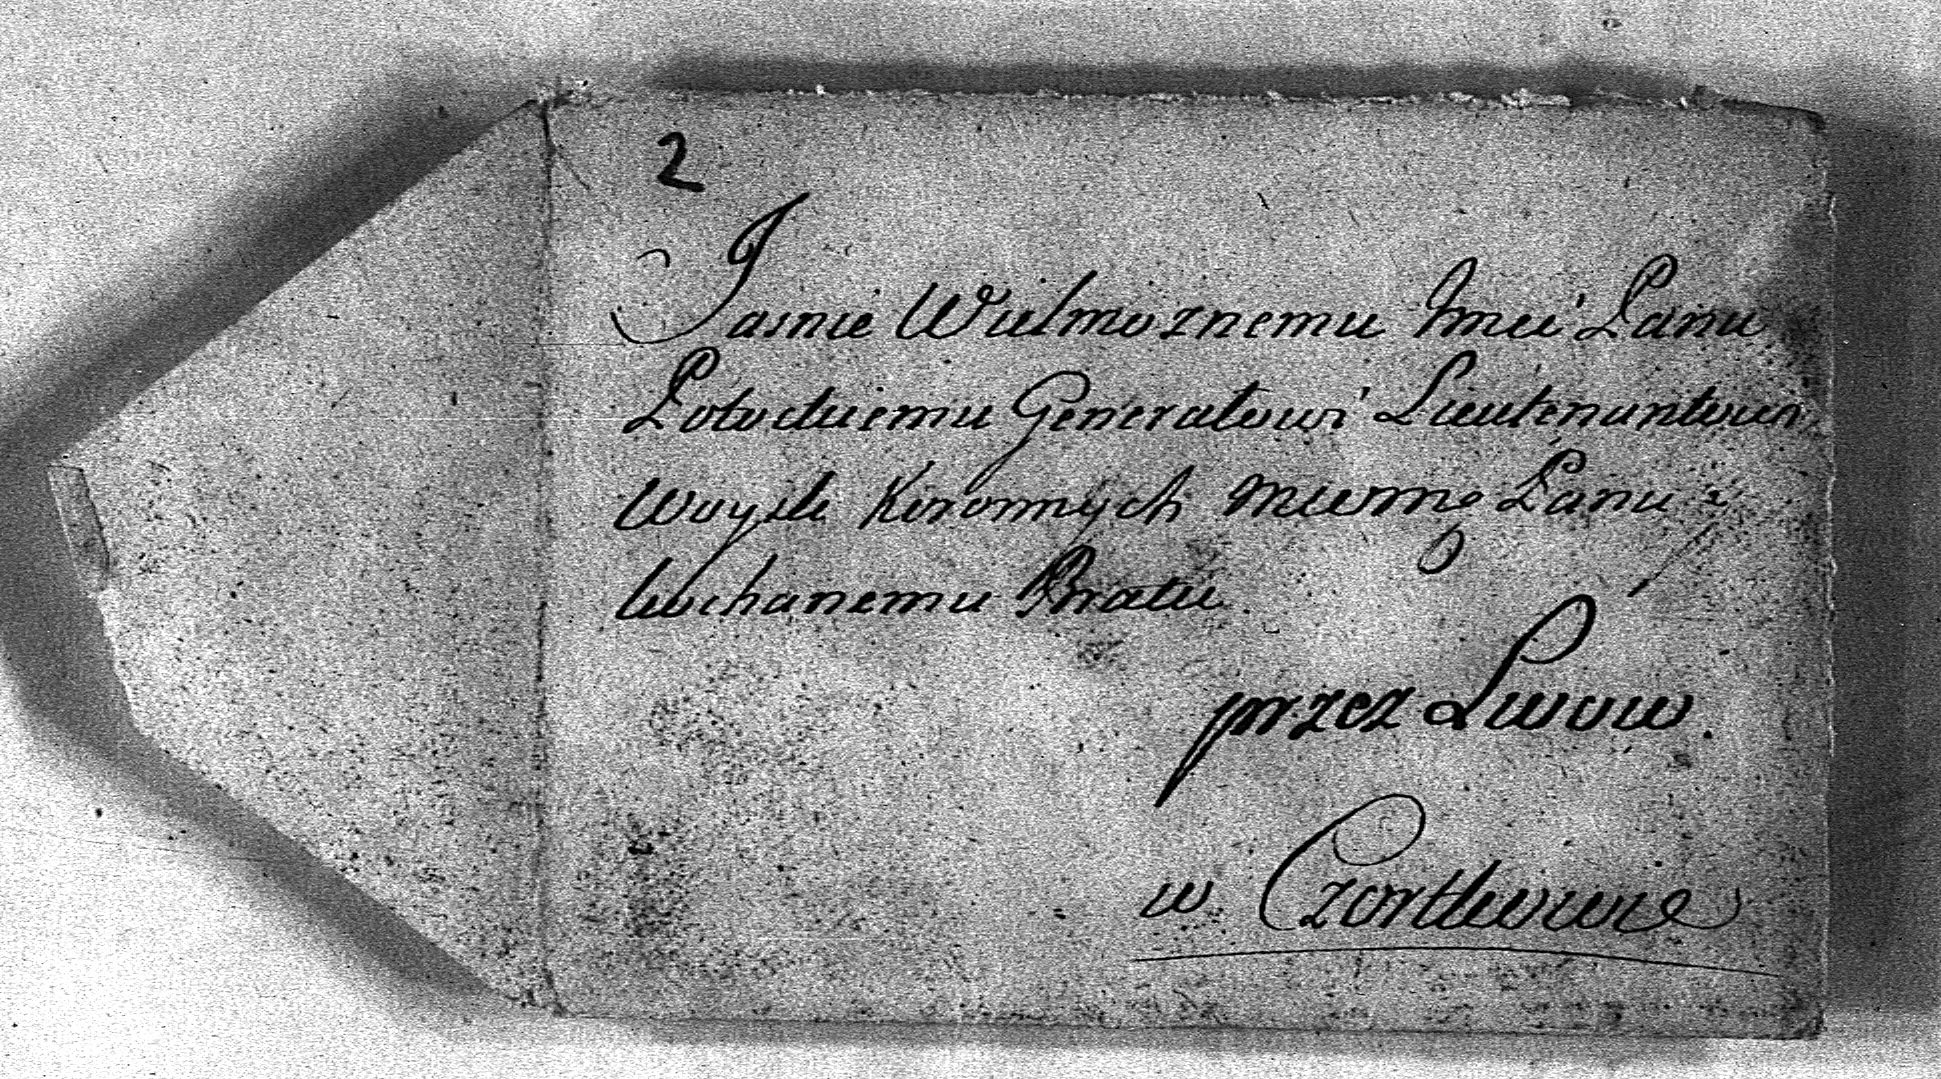 2
Jasnie Wielmoznemu Jmci Panu
Potockiemu Generałowi Lieutenantowi
Woysk Koronnych memu Panu i
kochanemu Bratu
przez Lwow.
w Czortkowie